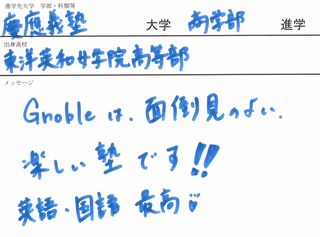 進学先大学 学部・科類等
慶應義塾 大学 商学部 進学
出身高校
東洋英和女学院高等部
メッセージ
Gnobleは、面倒見のよい、
楽しい塾です!!
英語・国語 最高♡